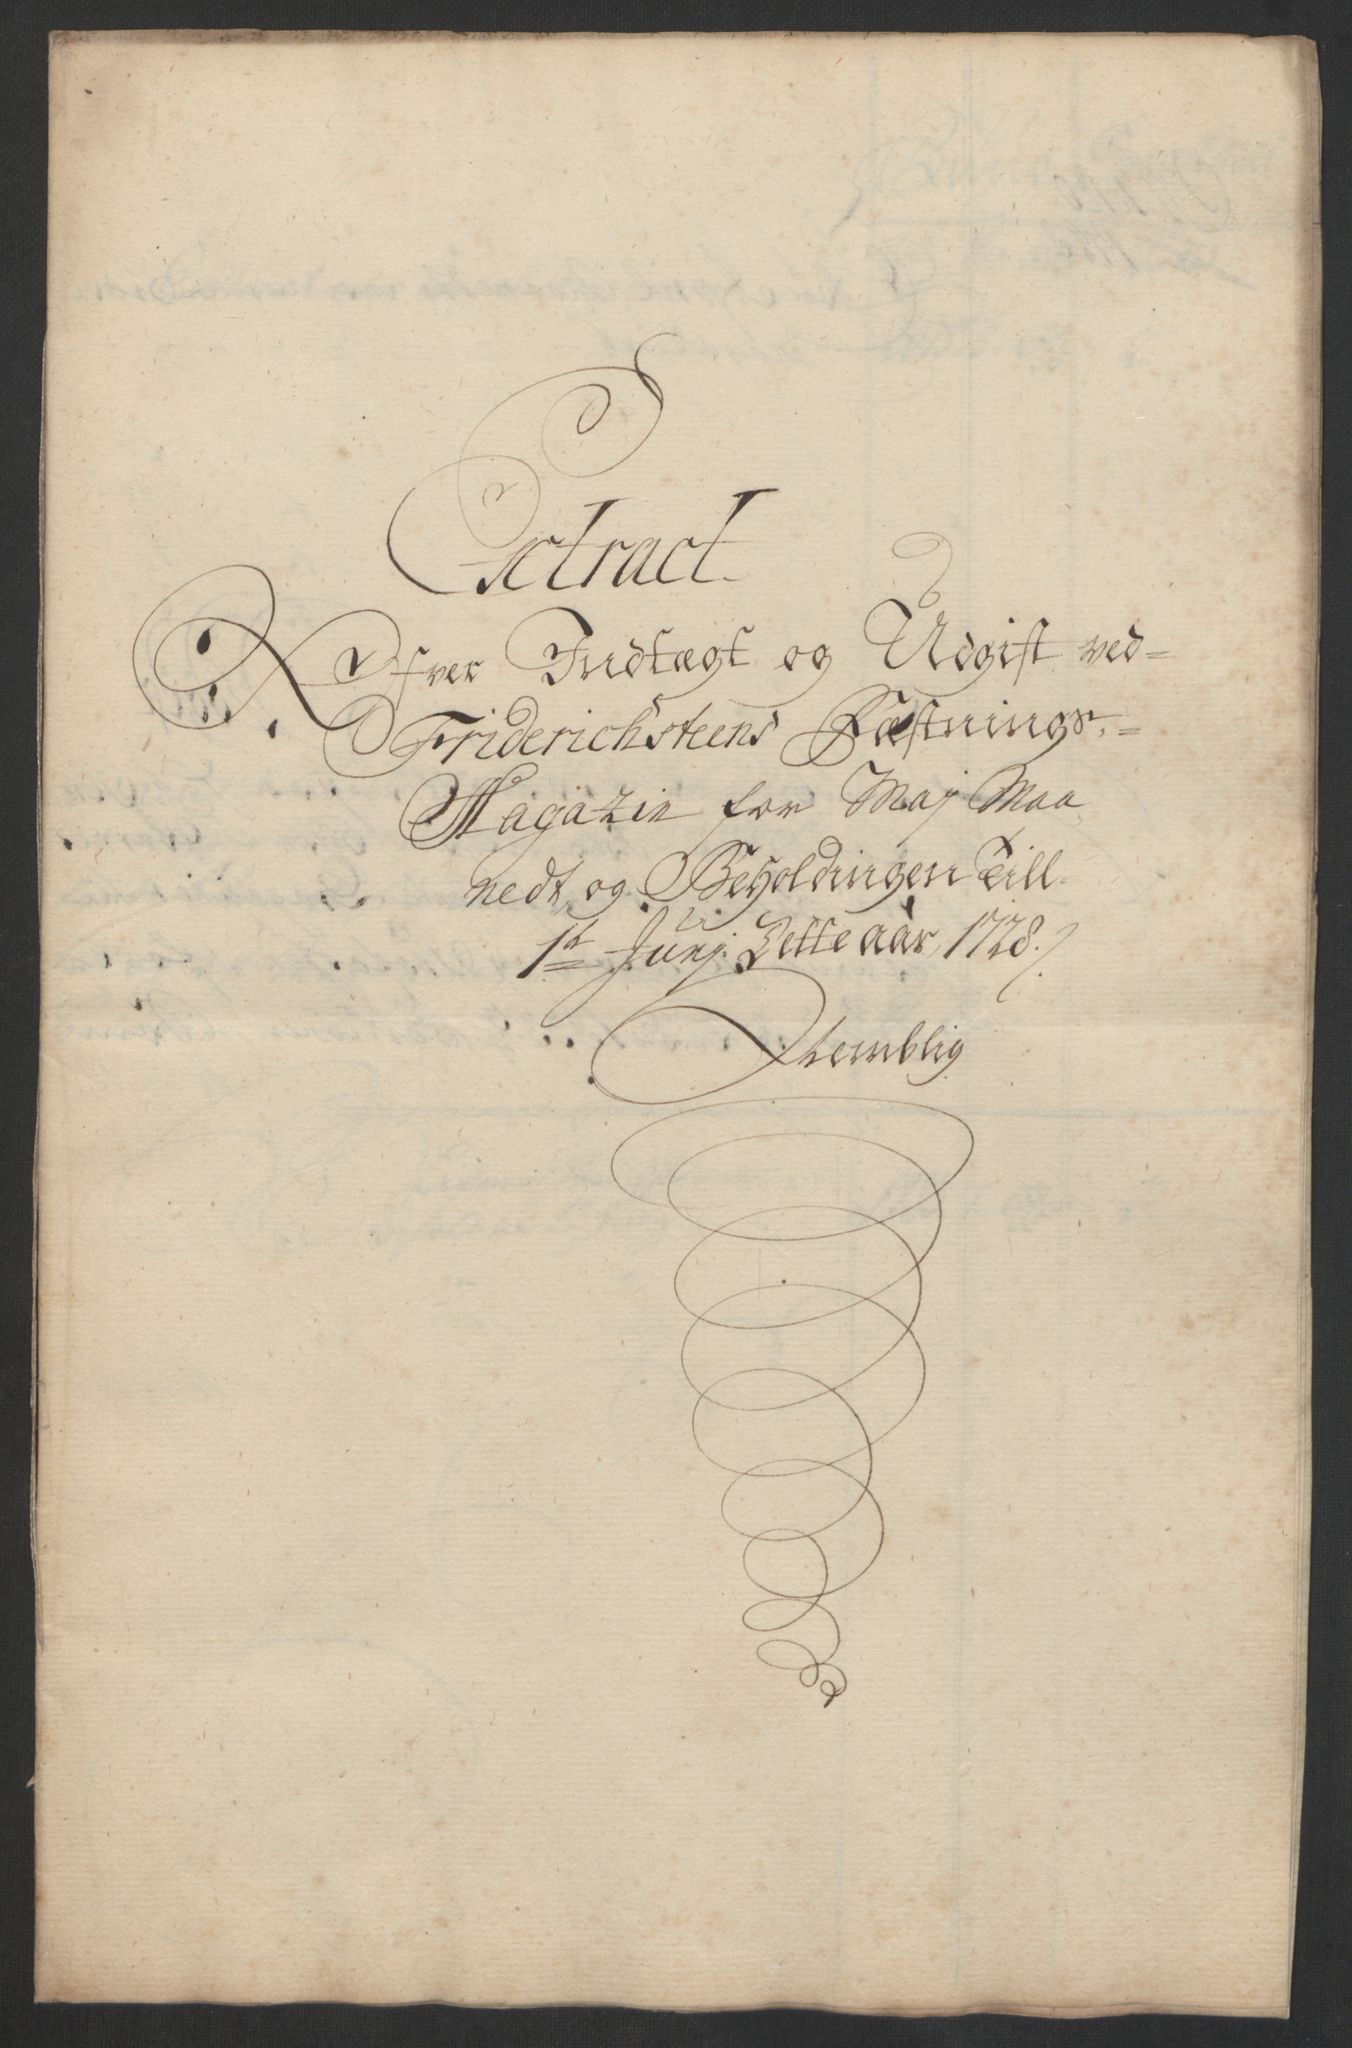 Extract
Ofver Indtægt og Udgift ved=
Friderichsteens Fæstnings=
Magazin for Maj Maa
nedt og Beholdingen Till
1st Junj Dette aar 1728./.
Nemblig